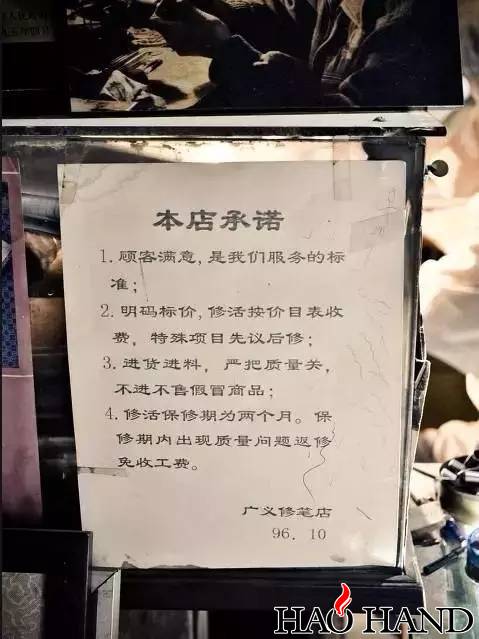 本店承诺
1. 顾客满意，是我们服务的标
准；
2. 明码标价，修活按价目表收
费，特殊项目先议后修；
3. 进货进料，严把质量关，
不进不售假冒商品；
4. 修活保修期为两个月。保
修期内出现质量问题返修
免收工费。
广义修笔店
96. 10
HAO HAND